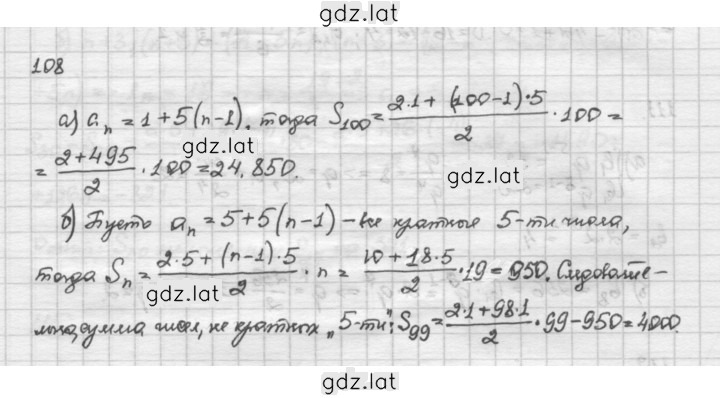 gdz.lat
108
а) aₙ = 1 + 5(n-1), тогда S₁₀₀ = (2·1 + (100-1)·5)/2 · 100 =
gdz.lat
= (2+495)/2 · 100 = 24.850.
gdz.lat
б) Пусть aₙ = 5 + 5(n-1) – все кратные 5-ти числа,
тогда Sₙ = (2·5 + (n-1)·5)/2 · n = (10 + 18·5)/2 · 19 = 950. Следовате-
gdz.lat
льно, сумма чисел, не кратных „5-ти": S₉₉ = (2·1 + 98·1)/2 · 99 - 950 = 4000.
gdz.lat